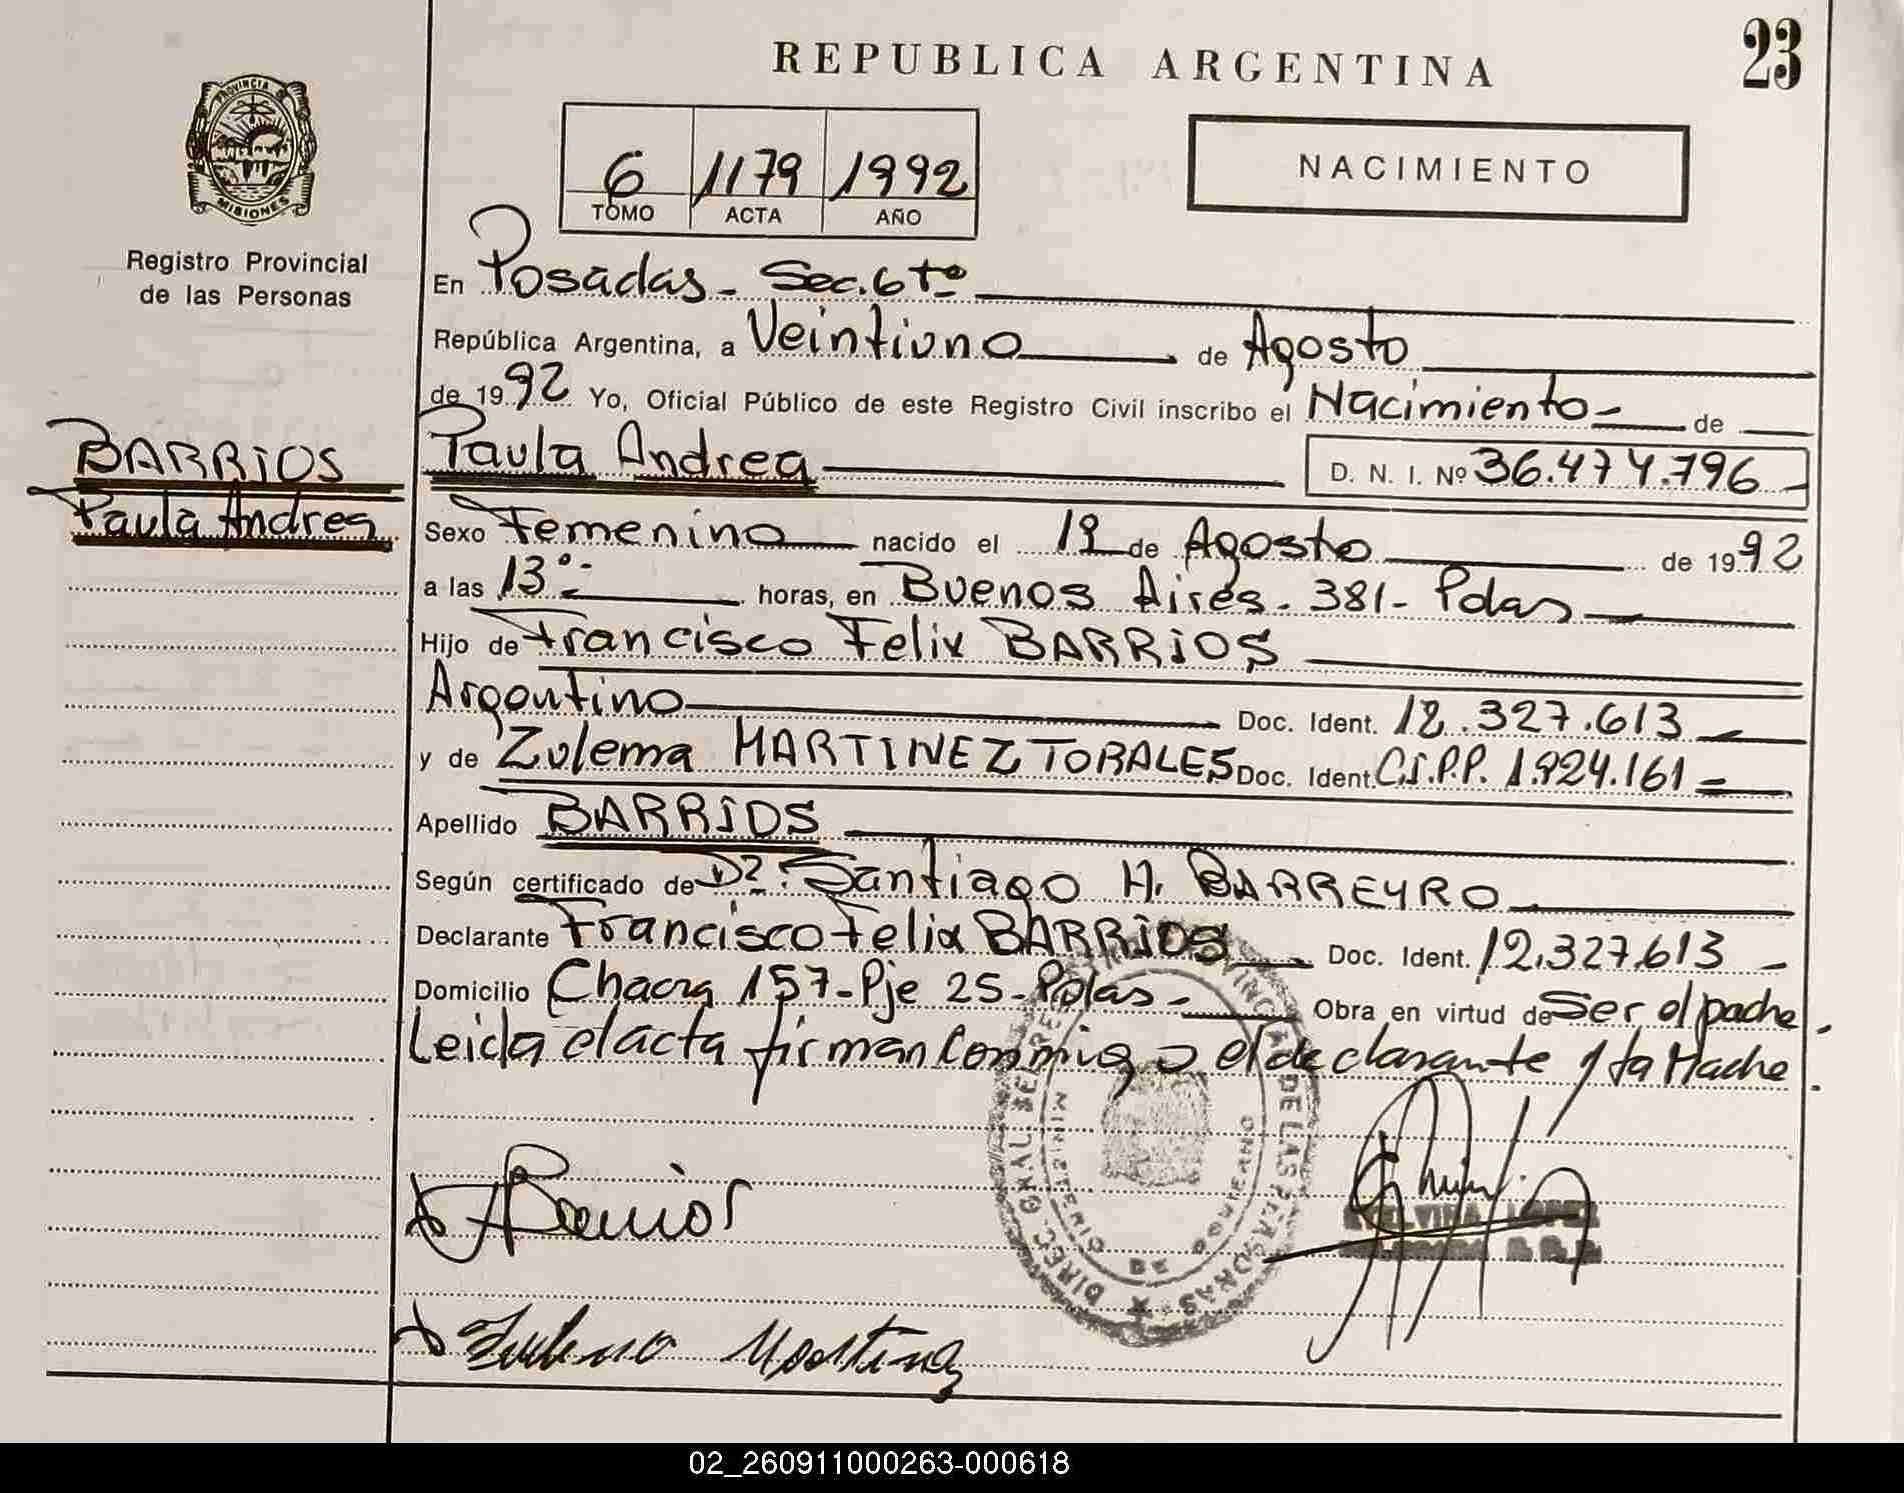 REPUBLICA ARGENTINA
23
PROVINCIA DE
MISIONES
Registro Provincial
de las Personas
6 1179 1992
TOMO ACTA AÑO
NACIMIENTO
En Posadas - Sec. 6ta
República Argentina, a Veintiuno de Agosto
de 1992 Yo, Oficial Público de este Registro Civil inscribo el Nacimiento de
BARRIOS
Paula Andrea
Paula Andrea D. N. I. Nº 36.474.796
Sexo Femenino nacido el 19 de Agosto de 1992
a las 13°- horas, en Buenos Aires - 381 - Pdas
Hijo de Francisco Felix BARRIOS
Argentino Doc. Ident. 12.327.613
y de Zulema MARTINEZ TORALES Doc. Ident. C.I.P.P. 1.924.161
Apellido BARRIOS
Según certificado de Dr. Santiago H. BARREYRO
Declarante Francisco Felix BARRIOS Doc. Ident. 12.327.613
Domicilio Chacra 157 - Pje 25 - Pdas - Obra en virtud de Ser el padre.
Leida el acta firman conmigo el declarante y la Madre.
DIREC. GRAL. DEL REG. PROVINCIAL DE LAS PERSONAS
MINISTERIO DE GOBIERNO
Barrios
ELVIRA LOPEZ
Zulema Martinez
02_260911000263-000618